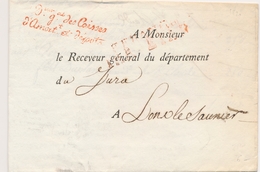 D.on g.le des Caisses
d'Amort.t et Dépôts
A Monsieur
le Receveur général du département
du Jura
A Lons le Saunier